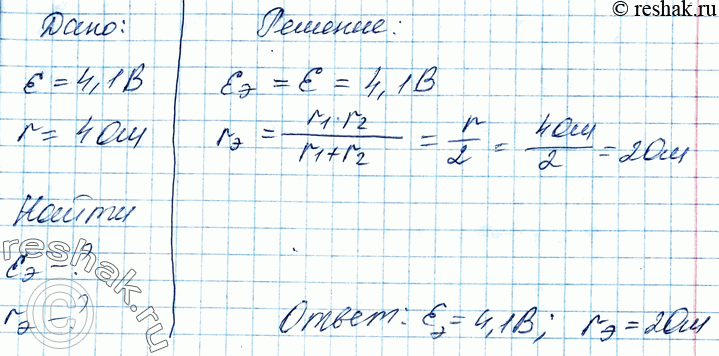 © reshak.ru
Дано:
ε = 4,1В
r = 4Ом
Найти
εэ - ?
rэ - ?
Решение:
εэ = ε = 4,1В
rэ = r1·r2 / r1+r2 = r/2 = 4Ом/2 = 2Ом
Ответ: εэ = 4,1В; rэ = 2Ом